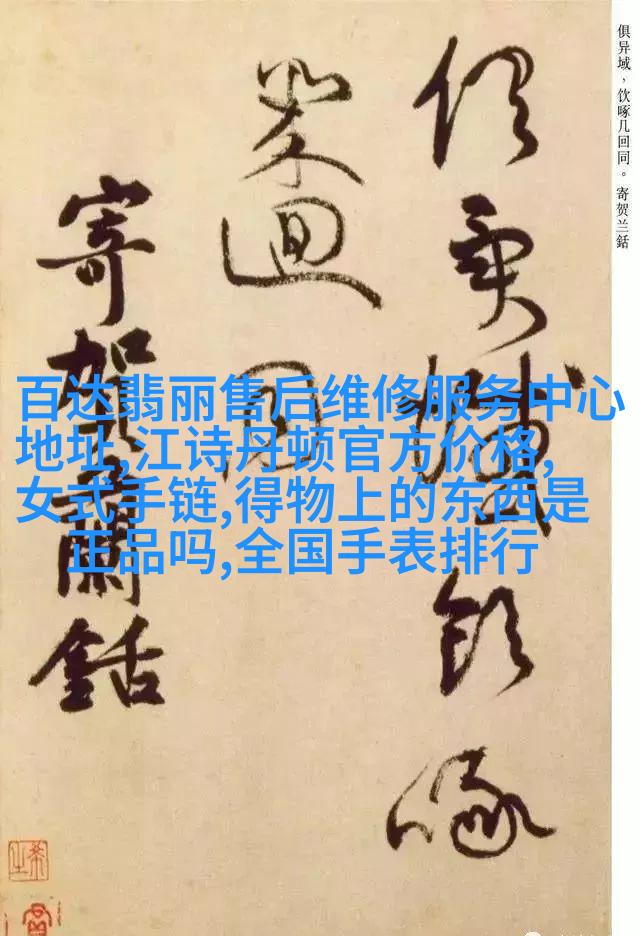 俱异域，饮啄几回同。寄贺兰銛
俱異域飲啄
幾迴同
寄賀蘭銛
百达翡丽售后维修服务中心
地址,江诗丹顿官方价格,
女式手链,得物上的东西是
正品吗,全国手表排行